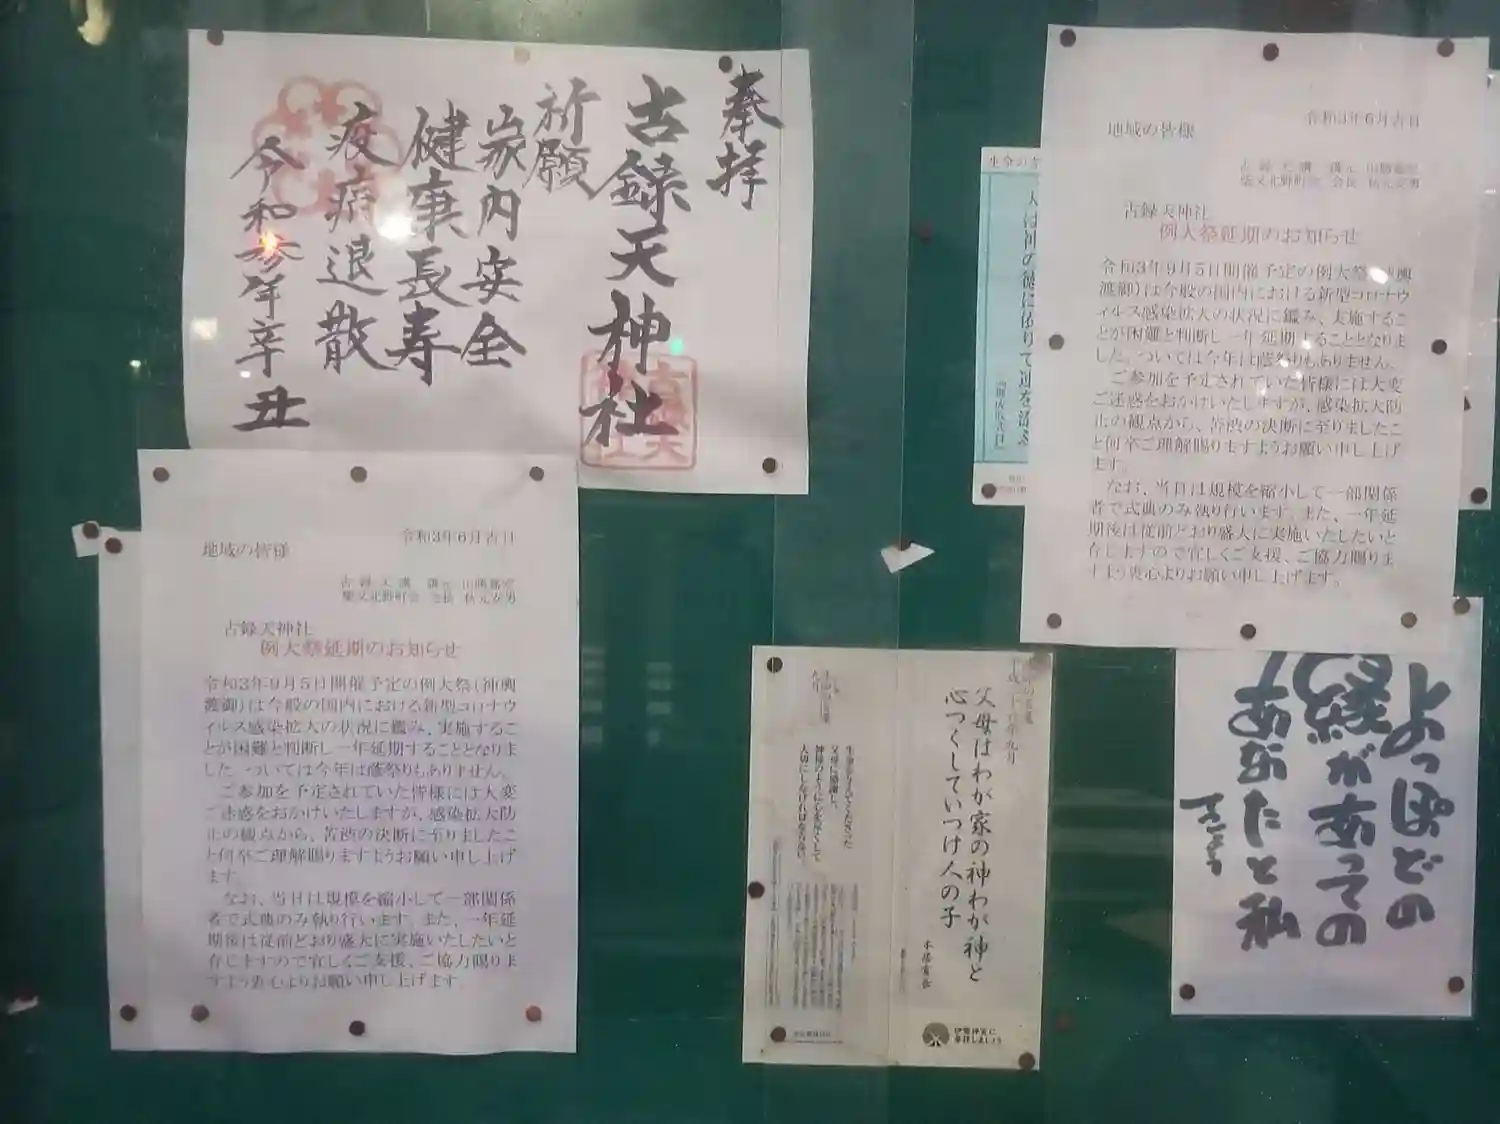 奉拝
古録天神社
祈願
家内安全
健康長寿
疫病退散
令和参年辛丑
令和3年6月吉日
地域の皆様
古録天神社
例大祭延期のお知らせ
令和3年9月5日開催予定の例大祭(神輿
渡御)は今般の国内における新型コロナウ
ィルス感染拡大の状況に鑑み、実施するこ
とが困難と判断し一年延期することとなりま
した。ついては今年は蔭祭りもありません。
ご参加を予定されていた皆様には大変
ご迷惑をおかけいたしますが、感染拡大防
止の観点から、苦渋の決断に至りましたこ
と何卒ご理解賜りますようお願い申し上げ
ます。
なお、当日は規模を縮小して一部関係
者で式典のみ執り行います。また、一年延
期後は従前どおり盛大に実施いたしたいと
存じますので宜しくご支援、ご協力賜りま
すよう衷心よりお願い申し上げます。
生命の言
人は神の徳に依りて運を添ふ
令和3年6月吉日
地域の皆様
古録天神社
例大祭延期のお知らせ
令和3年9月5日開催予定の例大祭(神輿
渡御)は今般の国内における新型コロナウ
ィルス感染拡大の状況に鑑み、実施するこ
とが困難と判断し一年延期することとなりま
した。ついては今年は蔭祭りもありません。
ご参加を予定されていた皆様には大変
ご迷惑をおかけいたしますが、感染拡大防
止の観点から、苦渋の決断に至りましたこ
と何卒ご理解賜りますようお願い申し上げ
ます。
なお、当日は規模を縮小して一部関係
者で式典のみ執り行います。また、一年延
期後は従前どおり盛大に実施いたしたいと
存じますので宜しくご支援、ご協力賜りま
すよう衷心よりお願い申し上げます。
父母はわが家の神わが神と
心つくしていつけ人の子
本居宣長
生命を与えてくださった
父母に感謝し、
神様のように心を尽くして
大切にしなければならない。
伊勢神宮に
参拝しましょう
よっぽどの
縁があっての
あなたと私